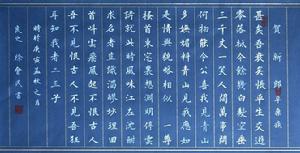 賀新郎 辛棄疾
甚矣吾衰矣悵平生交遊
零落祗今餘幾白髮空垂
三千丈一笑人間萬事問
何物能令公喜我見青山
多嫵媚料青山見我應如
是情與貌略相似 一尊
搔首東窗裏想淵明停雲
詩就此時風味江左沈酣
求名者豈識濁醪妙理回
首叫雲飛風起不恨古人
吾不見恨古人不見吾狂
耳知我者二三子
時於庚寅孟秋之月